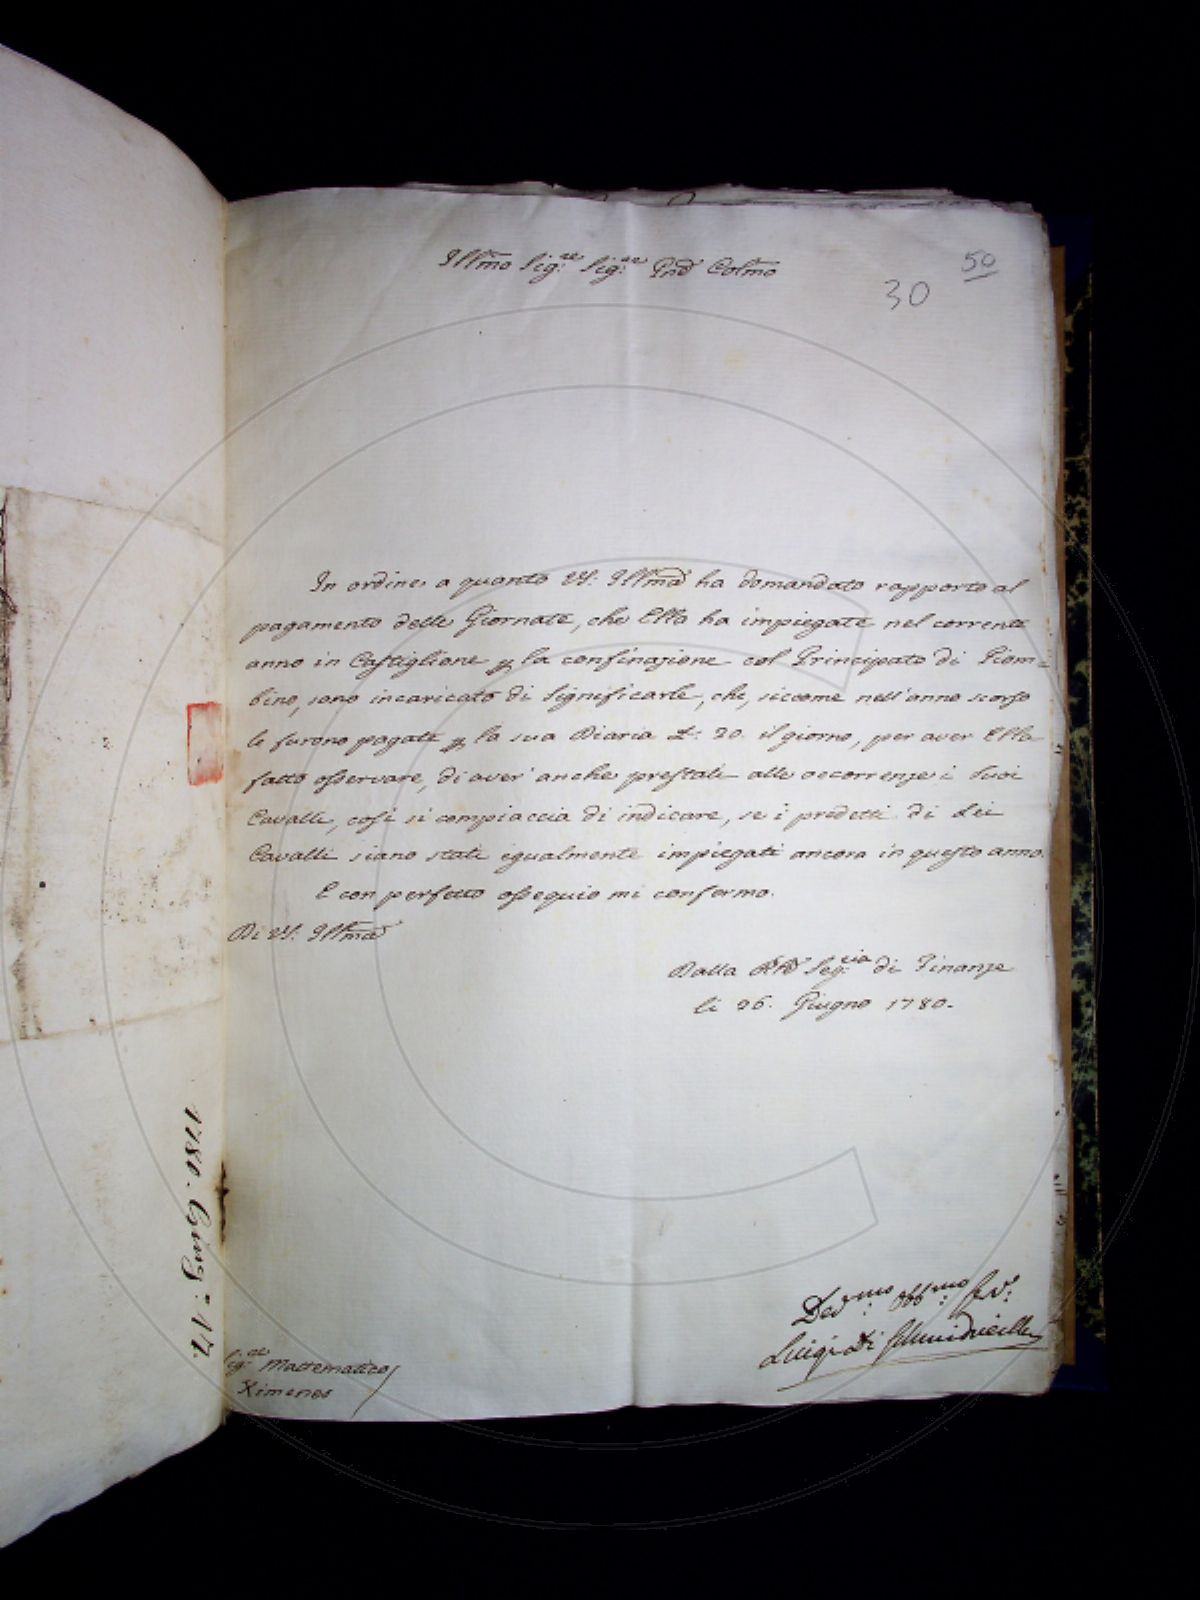 50
30
Illmo Sig:re Sig:re Pne Colmo
In ordine a quanto VS: Illma ha domandato rapporto al
pagamento delle Giornate, che Ella ha impiegate nel corrente
anno in Castiglione p la confinazione col Principato di Piom-
bino, sono incaricato di significarle, che, siccome nell'anno scorso
le furono pagate p la sua Diaria L: 20. il giorno, per aver Ella
fatto osservare, di aver' anche prestati alle occorrenze i suoi
Cavalli, così si compiaccia di indicare, se i predetti di Lei
Cavalli siano stati egualmente impiegati ancora in questo anno.
E con perfetto ossequio mi confermo.
Di VS: Illma
Dalla Seg:cia di Finanze
li 26. Giugno 1780.
Dev:mo Obb:mo Se:re
Luigi di
Sig:re Matematico
Ximenes
1780. Giug:o 17.